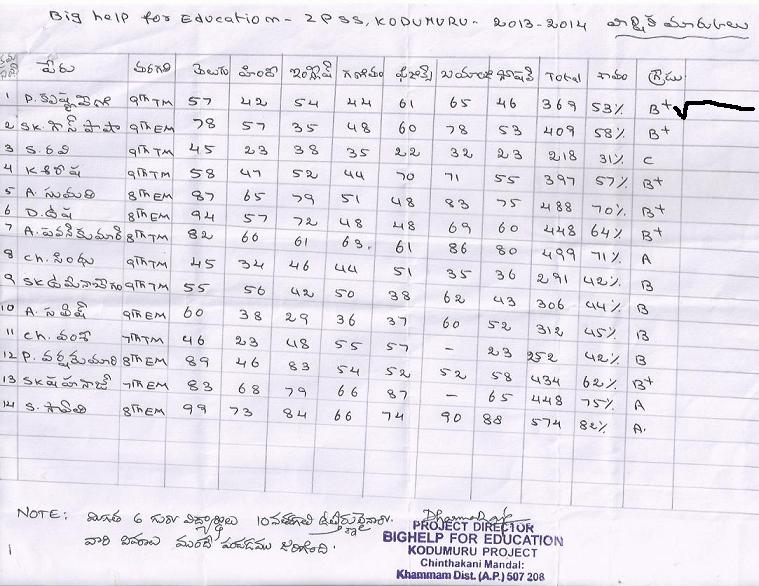 Big help for Education - ZPSS, KODUMURU - 2013-2014 వార్షిక మార్కులు
క్రమ సంఖ్య పేరు తరగతి తెలుగు హిందీ ఇంగ్లీష్ గణితం ఫిజిక్స్ బయాలజీ సోషల్ Total శాతం గ్రేడు
1 P. 9th TM 57 42 54 44 61 65 46 369 53% B+
2 SK. గౌస్ పాషా 9th EM 78 57 35 48 60 78 53 409 58% B+
3 S. రవి 9th TM 45 23 38 35 22 32 23 218 31% C
4 K శిరీష 9th TM 58 47 52 44 70 71 55 397 57% B+
5 A. సుమతి 8th EM 87 65 79 51 48 83 75 488 70% B+
6 D. ఉష 8th EM 94 57 72 48 48 69 60 448 64% B+
7 A. పవన్ కుమార్ 8th TM 82 66 61 63. 61 86 80 499 71% A
8 Ch. సింధు 9th TM 45 34 46 44 51 35 36 291 42% B
9 SK 9th TM 55 56 42 50 38 62 43 306 44% B
10 A. 9th EM 60 38 29 36 37 60 52 312 45% B
11 Ch. వంశీ 7th TM 46 23 48 55 57 - 23 252 42% B
12 P. వర్ష కుమారి 8th EM 89 46 83 54 52 52 58 434 62% B+
13 SK షహనాజ్ 7th EM 83 68 79 66 87 - 65 448 75% A
14 S. 8th EM 99 73 84 66 74 90 88 574 82% A.
NOTE: మిగతా 6 గురు విద్యార్థులు 10వ తరగతి ఉత్తీర్ణులైనారు.
వారి వివరాలు ముందే పంపడము జరిగింది.
PROJECT DIRECTOR
BIGHELP FOR EDUCATION
KODUMURU PROJECT
Chinthakani Mandal:
Khammam Dist. (A.P.) 507 208